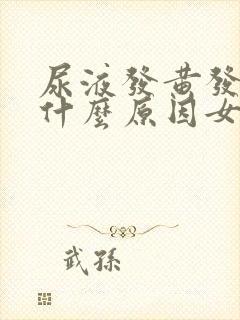 尿液發黄發
什麼原因女
武孫